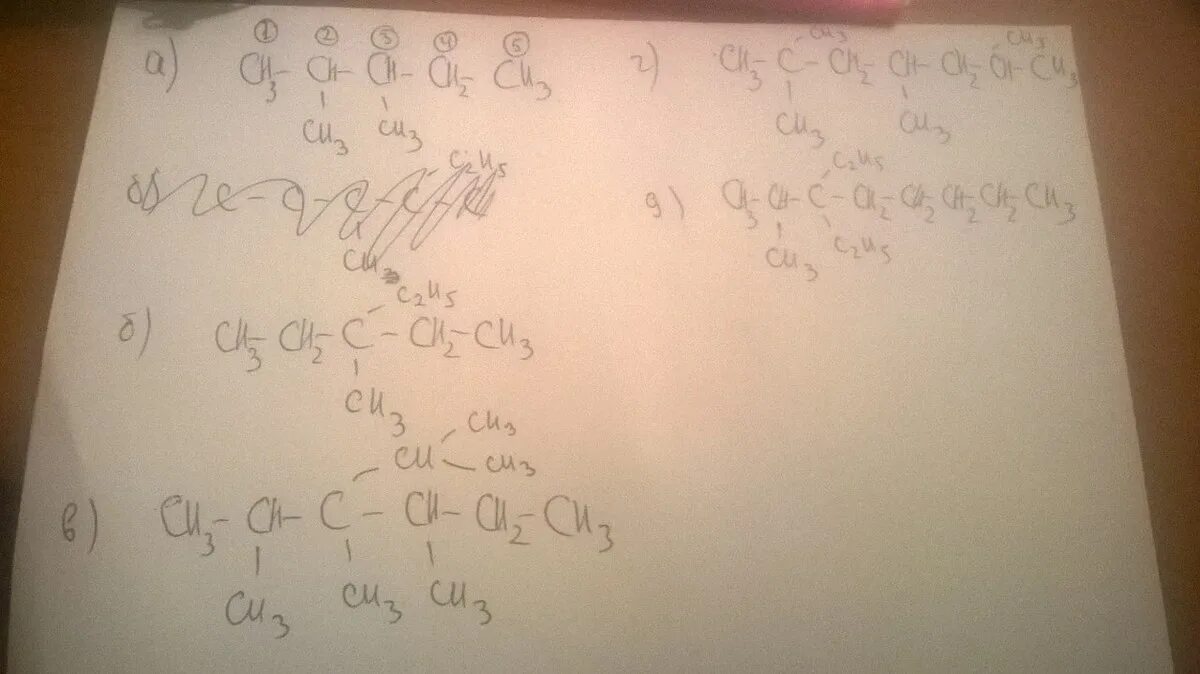 ① ② ③ ④ ⑤
а) CH3 - CH - CH - CH2 CH3
CH3 CH3
C2H5
CH3
C2H5
б) CH3 - CH2 - C - CH2 - CH3
CH3
CH3
CH - CH3
в) CH3 - CH - C - CH - CH2 - CH3
CH3 CH3 CH3
CH3 CH3
г) CH3 - C - CH2 - CH - CH2 - CH - CH3
CH3 CH3
C2H5
д) CH3 - CH - C - CH2 - CH2 - CH2 - CH2 - CH3
CH3 C2H5